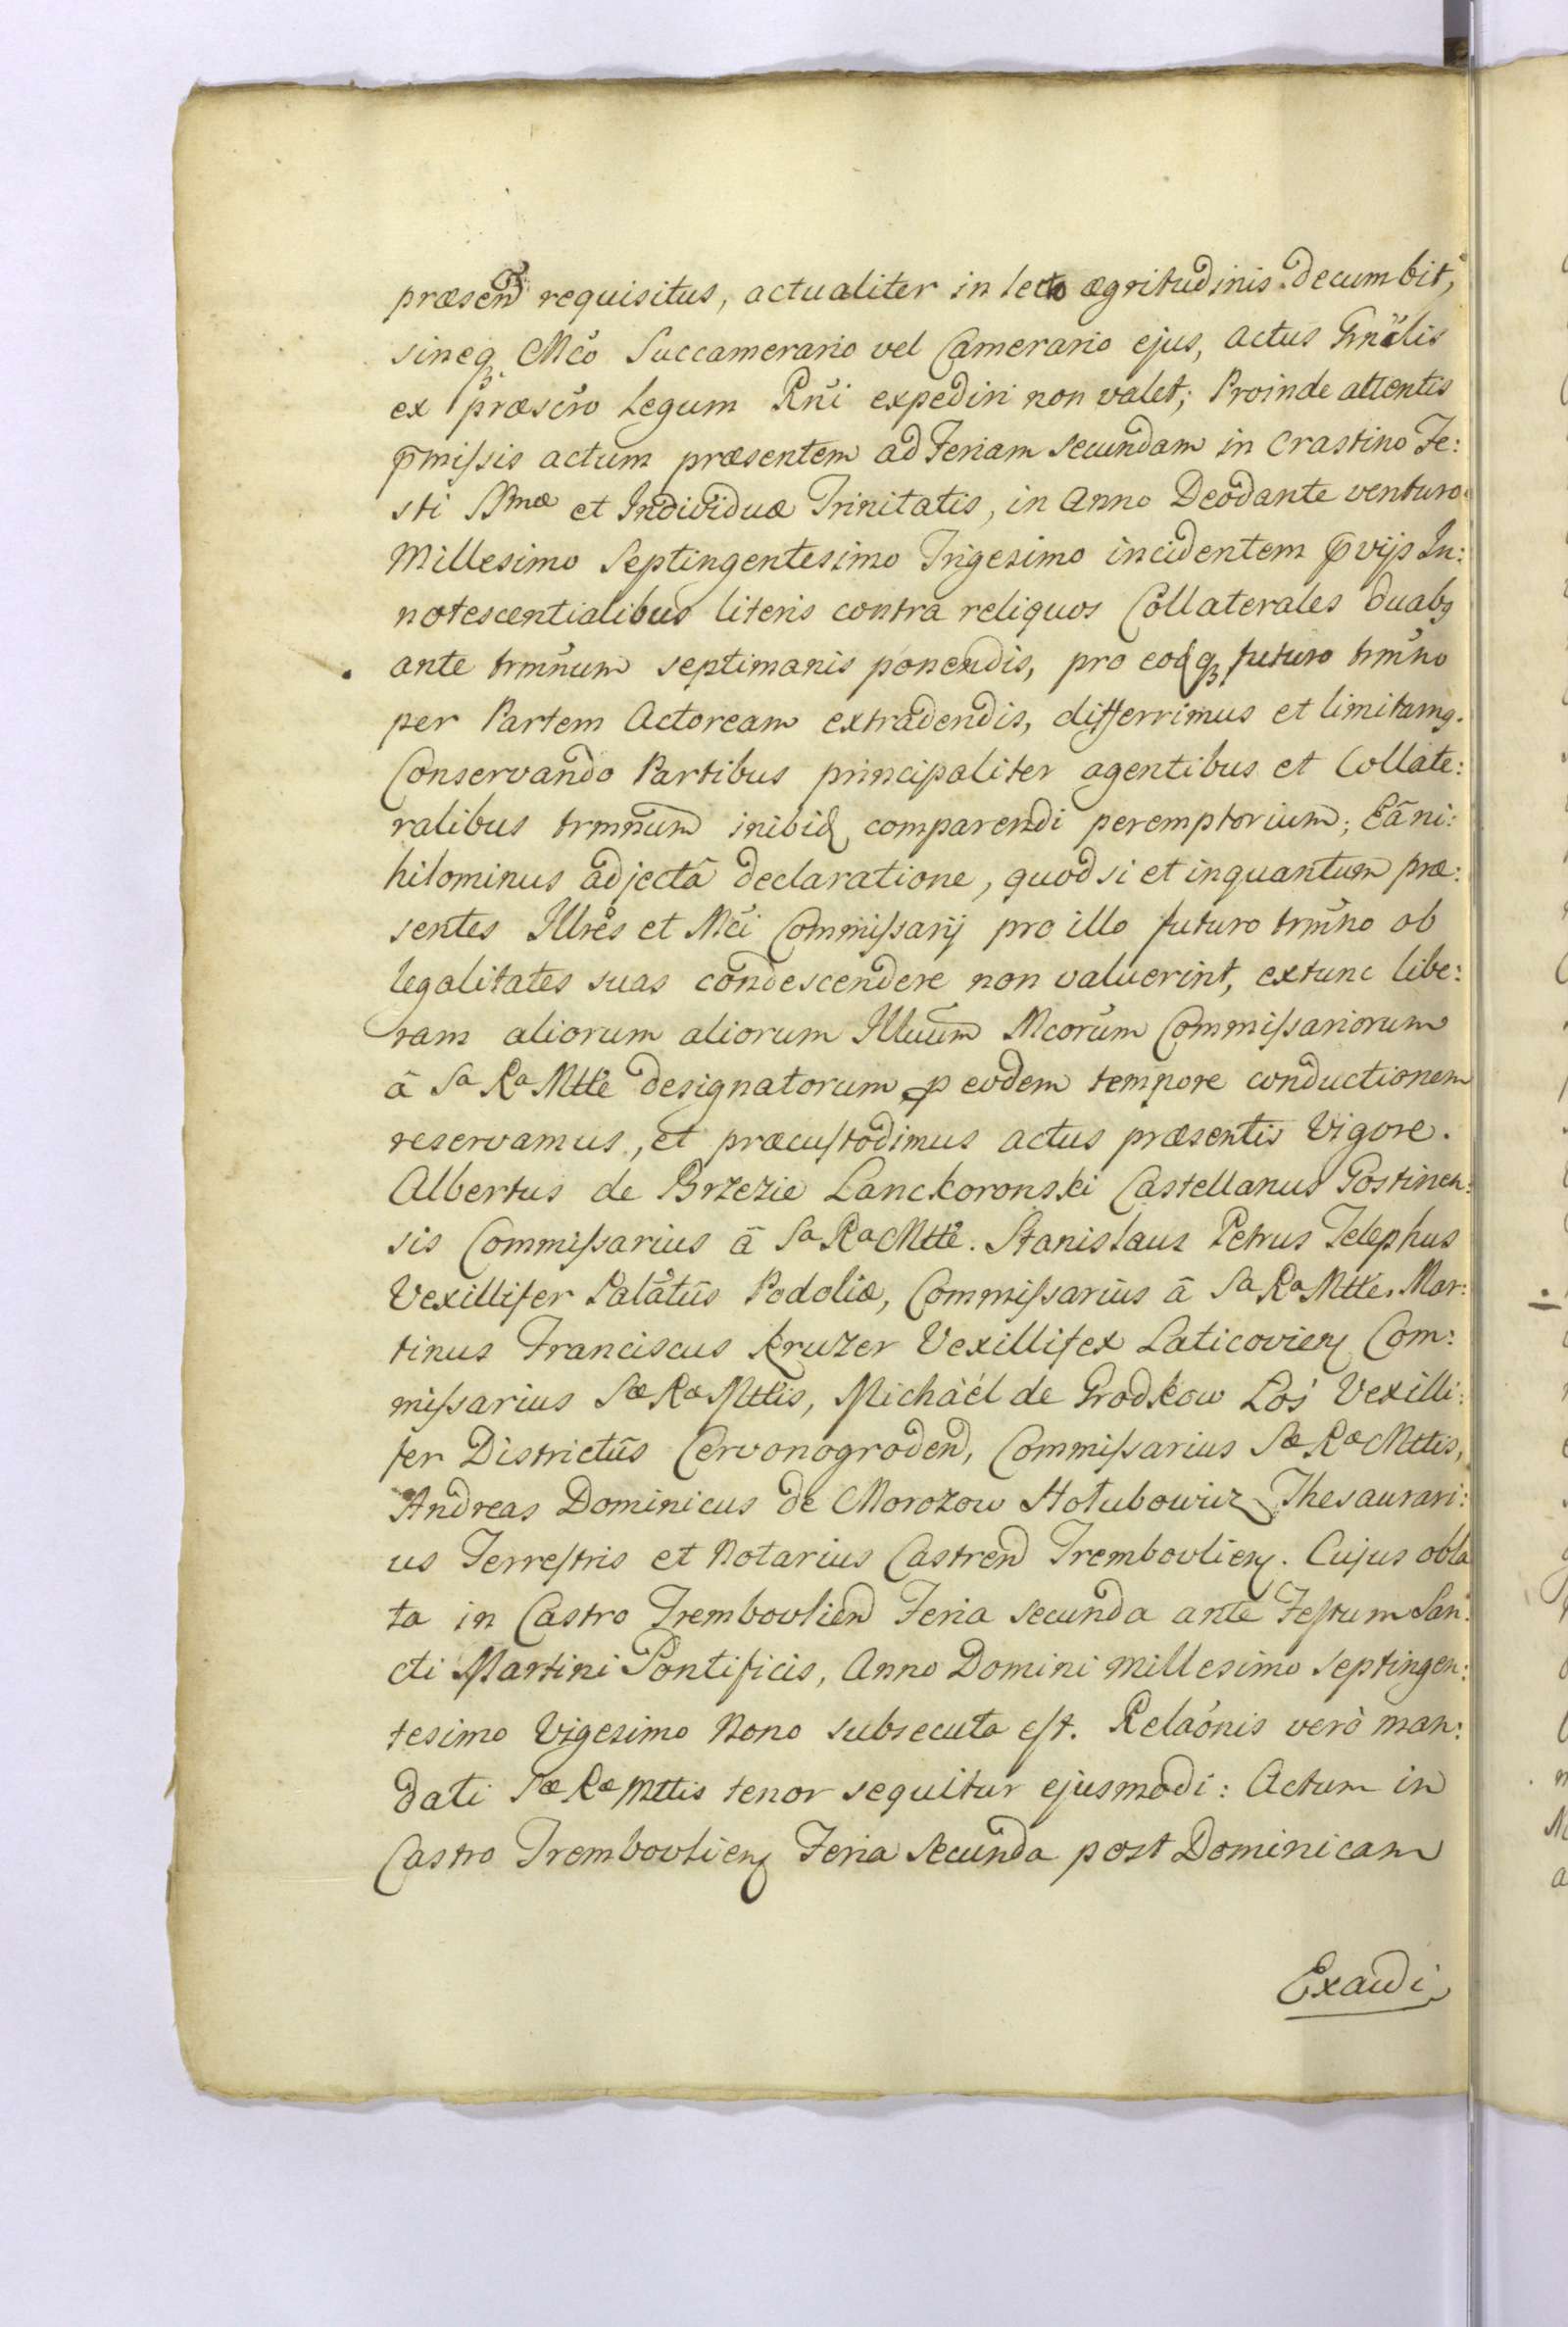 præsen̄d requisitus, actualiter in lecto ægritudinis decumbit,
sineq₃ Mc̄o Succamerario vel Camerario ejus, actus Gnālis
ex præscr̄o Legum Rn̄i expediri non valet; Proinde attentis
p̄missis actum præsentem ad Feriam Secundam in Crastino Fe:
sti SSmæ et Individuæ Trinitatis, in Anno Deo dante venturo
Millesimo Septingentesimo Trigesimo incidentem p̄vijs In:
notescentialibus literis contra reliquos Collaterales duabꝫ
ante trmn̄um septimanis ponendis, pro eodq₃ futuro trmn̄o
per Partem Actoream extradendis, differrimus et limitamꝫ.
Conservando Partibus principaliter agentibus et Collate:
ralibus trmn̄um inibid comparendi peremptorium; Eâ ni:
hilominus adjectâ declaratione, quod si et inquantum præ:
sentes Illrēs et Mc̄i Commissarij pro illo futuro trmn̄o ob
legalitates suas condescendere non valuerint, extunc libe:
ram aliorum aliorum Illuūm Mcorūm Commissariorum
â Sa Ra Mtte designatorum p eodem tempore conductionem
reservamus, et præcustodimus actus præsentis Vigore.
Albertus de Brzezie Lanckoronski Castellanus Gostinen:
sis Commissarius â Sa Ra Mtte. Stanislaus Petrus Telephus
Vexillifer Palātûs Podoliæ, Commissarius â Sa Ra Mtte. Mar:
tinus Franciscus Kruzer Vexillifer Laticovien̄ Com:
missarius Sæ Ræ Mttis, Michaël de Grodkow Łoś Vexilli:
fer Districtûs Cervonogroden̄, Commissarius Sæ Ræ Mttis,
Andreas Dominicus de Morozow Hołubowicz Thesaurari:
us Terrestris et Notarius Castren̄ Trembovlien̄. Cujus obla
ta in Castro Trembovlien̄ Feria Secunda ante Festum San:
cti Martini Pontificis, Anno Domini millesimo Septingen:
tesimo Vigesimo Nono subsecuta est. Relaōnis verò man:
dati Sæ Ræ Mttis tenor sequitur ejusmodi: Actum in
Castro Trembovlien̄ Feria Secunda post Dominicam
Exaudi